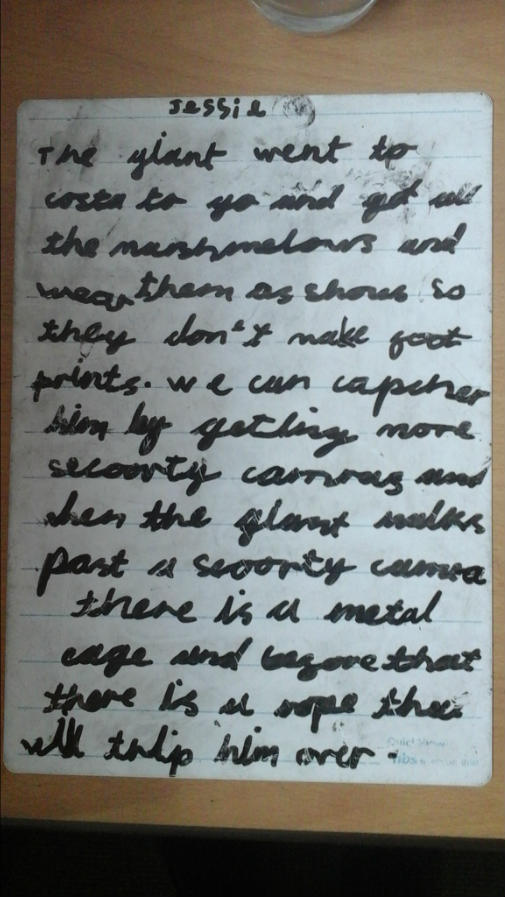 Jessie
The giant went to
costa to go and get all
the marshmelows and
wear them as shows so
they don't make foot
prints. we can capcher
him by getting more
secoorty camras and
when the giant walks
past a secoorty camra
there is a metal
cage and before that
there is a rope that
will trip him over.